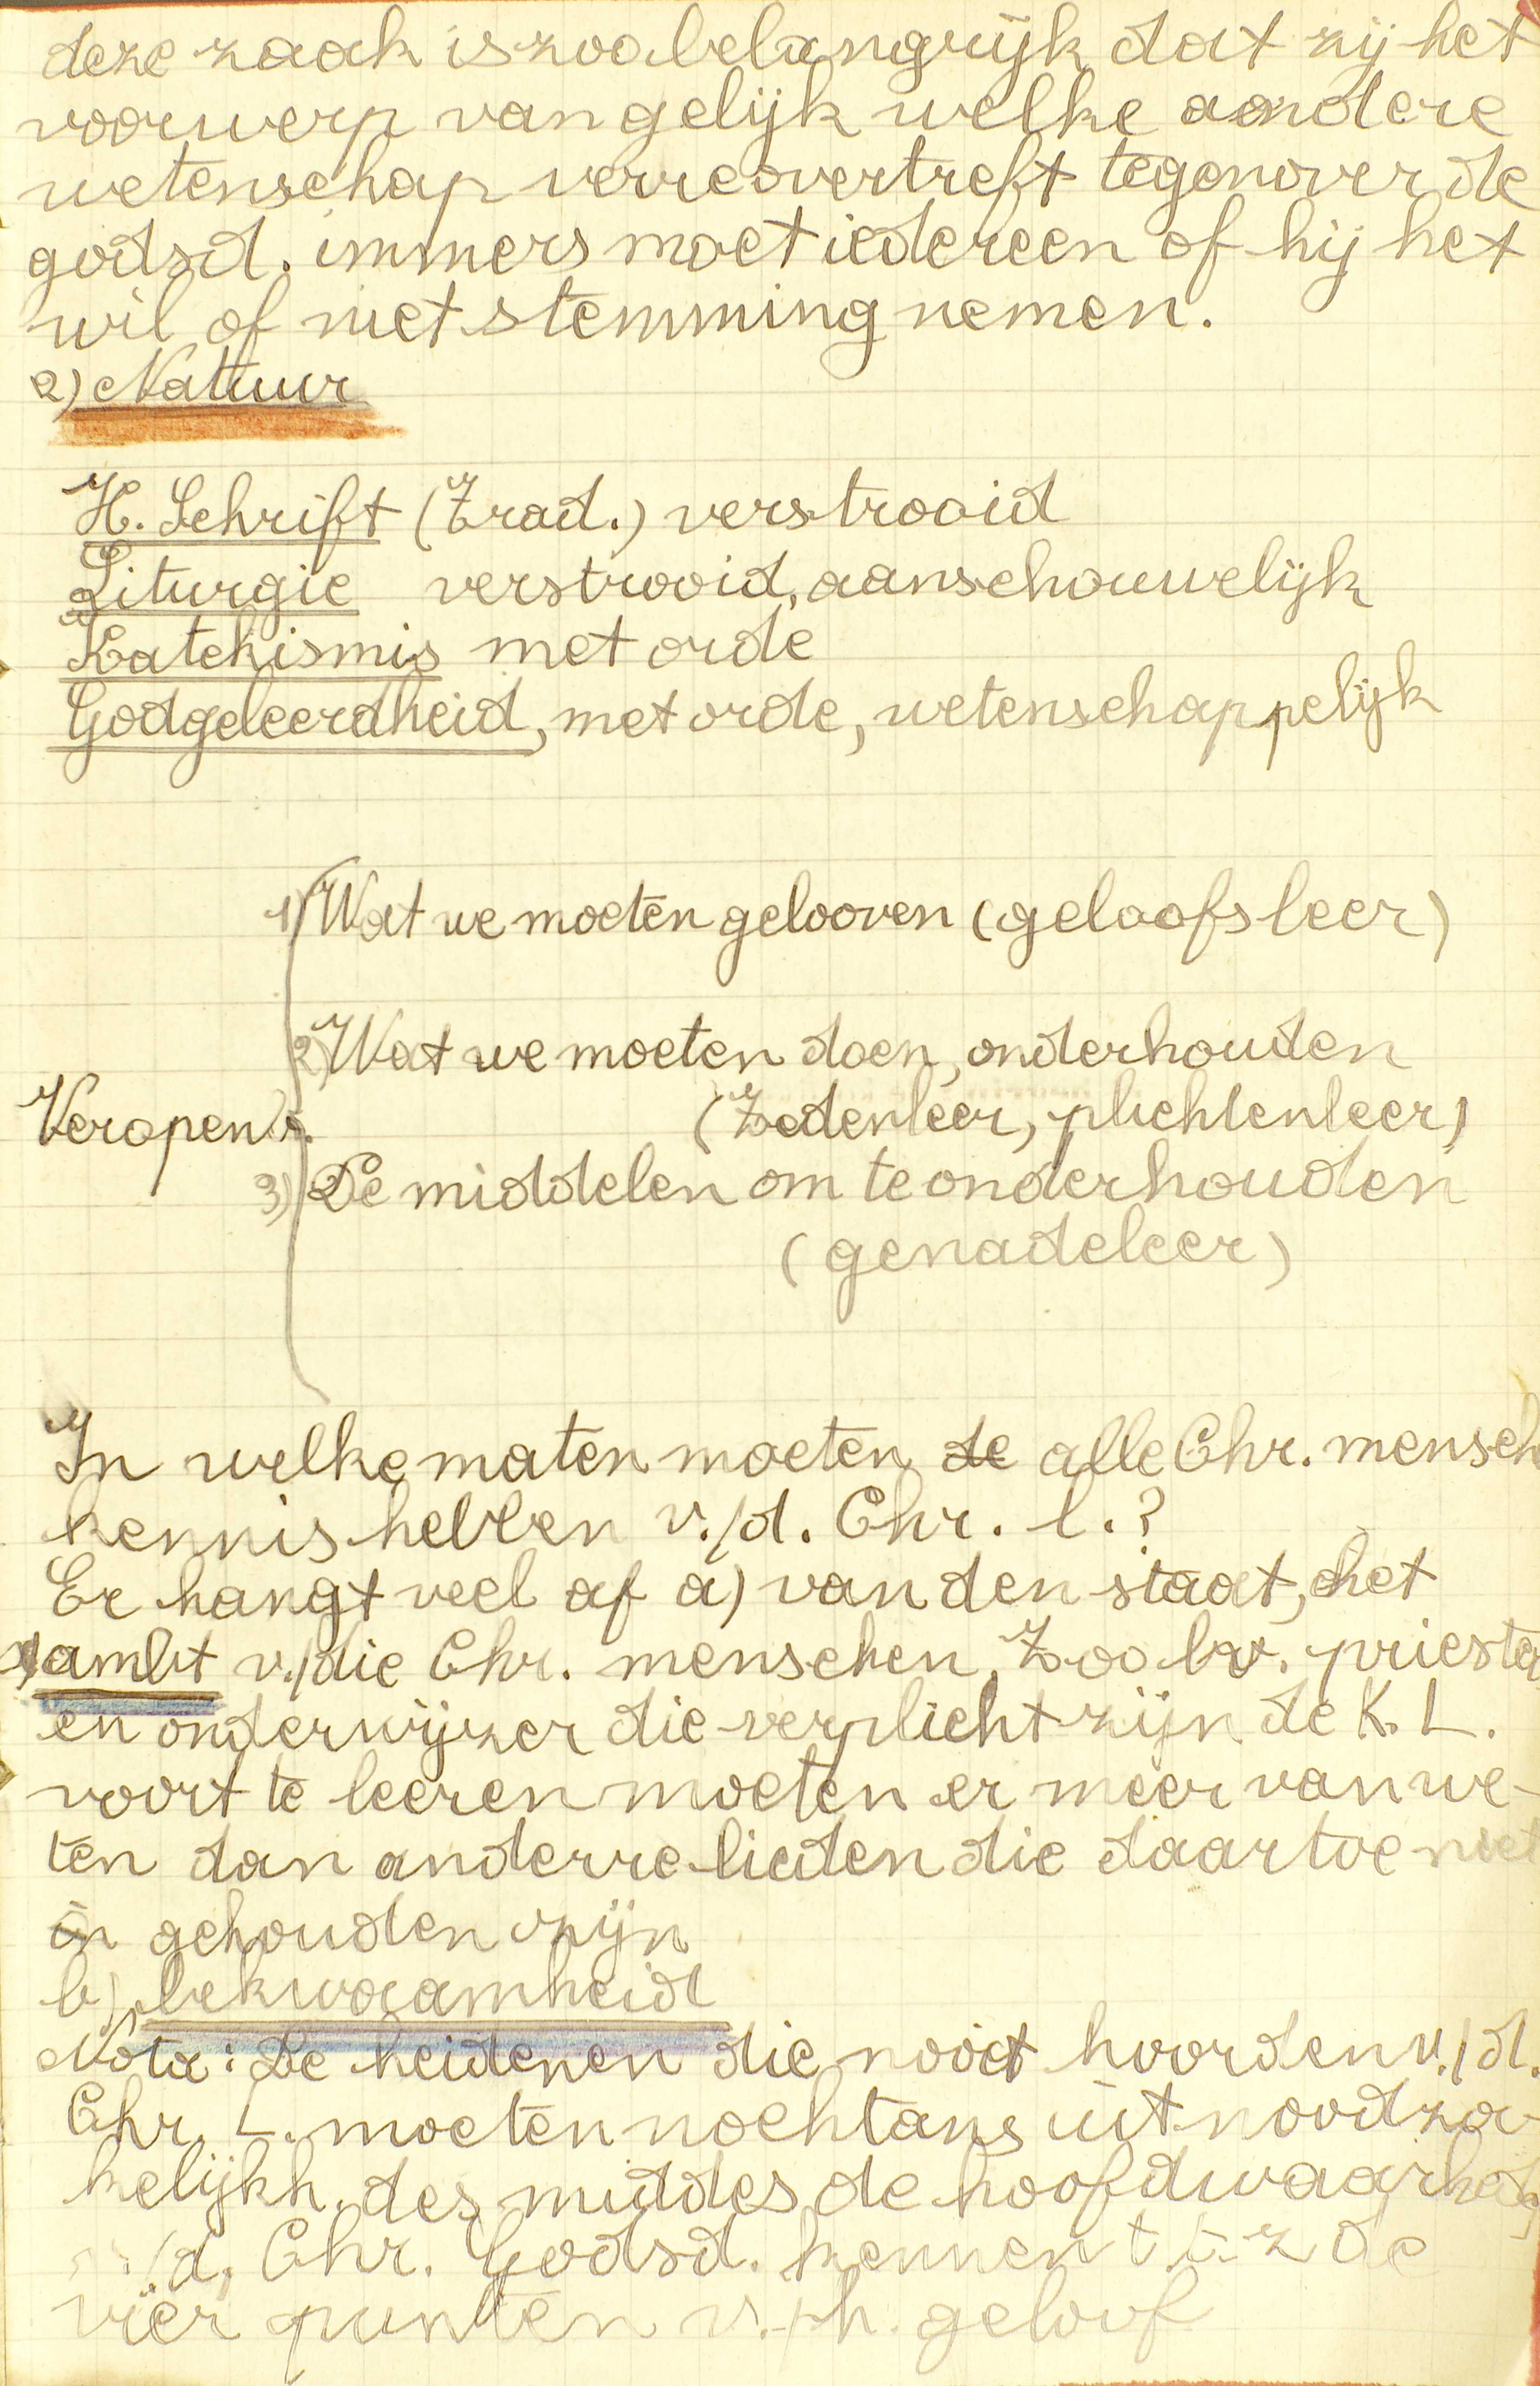 deze zaak is zoo belangrijk dat zij het
voorwerp van gelijk welke andere
wetenschap verre overtreft tegenover de
godsd. immers moet iedereen of hij het
wil of niet stemming nemen.
2) Natuur
H. Schrift (Trad.) verstrooid
Liturgie verstrooid, aanschouwelijk
Katekismis met orde
Godgeleerdheid, met orde, wetenschappelijk
1) Wat we moeten gelooven (geloofsleer)
2) Wat we moeten doen, onderhouden
Veropenb. (Zedenleer, plichtenleer)
3) De middelen om te onderhouden
(genadeleer)
In welke maten moeten de alle Chr. mensch
kennis hebben v./d. Chr. l.?
Er hangt veel af a) van den staat, het
ambt v./die Chr. menschen. Zoo bv. priester
en onderwijzer die verplicht zijn de K. L.
voort te leeren moeten er meer van we-
ten dan anderre lieden die daartoe niet
in gehouden zijn
b) bekwaamheid
Nota: De heidenen die nooit hoorden v./d.
Chr. L. moeten nochtans uit noodza-
kelijkh. des middes de hoofdwaarhed
/d. Chr. Godsd. kennen t. t. z de
vier punten v./h. geloof